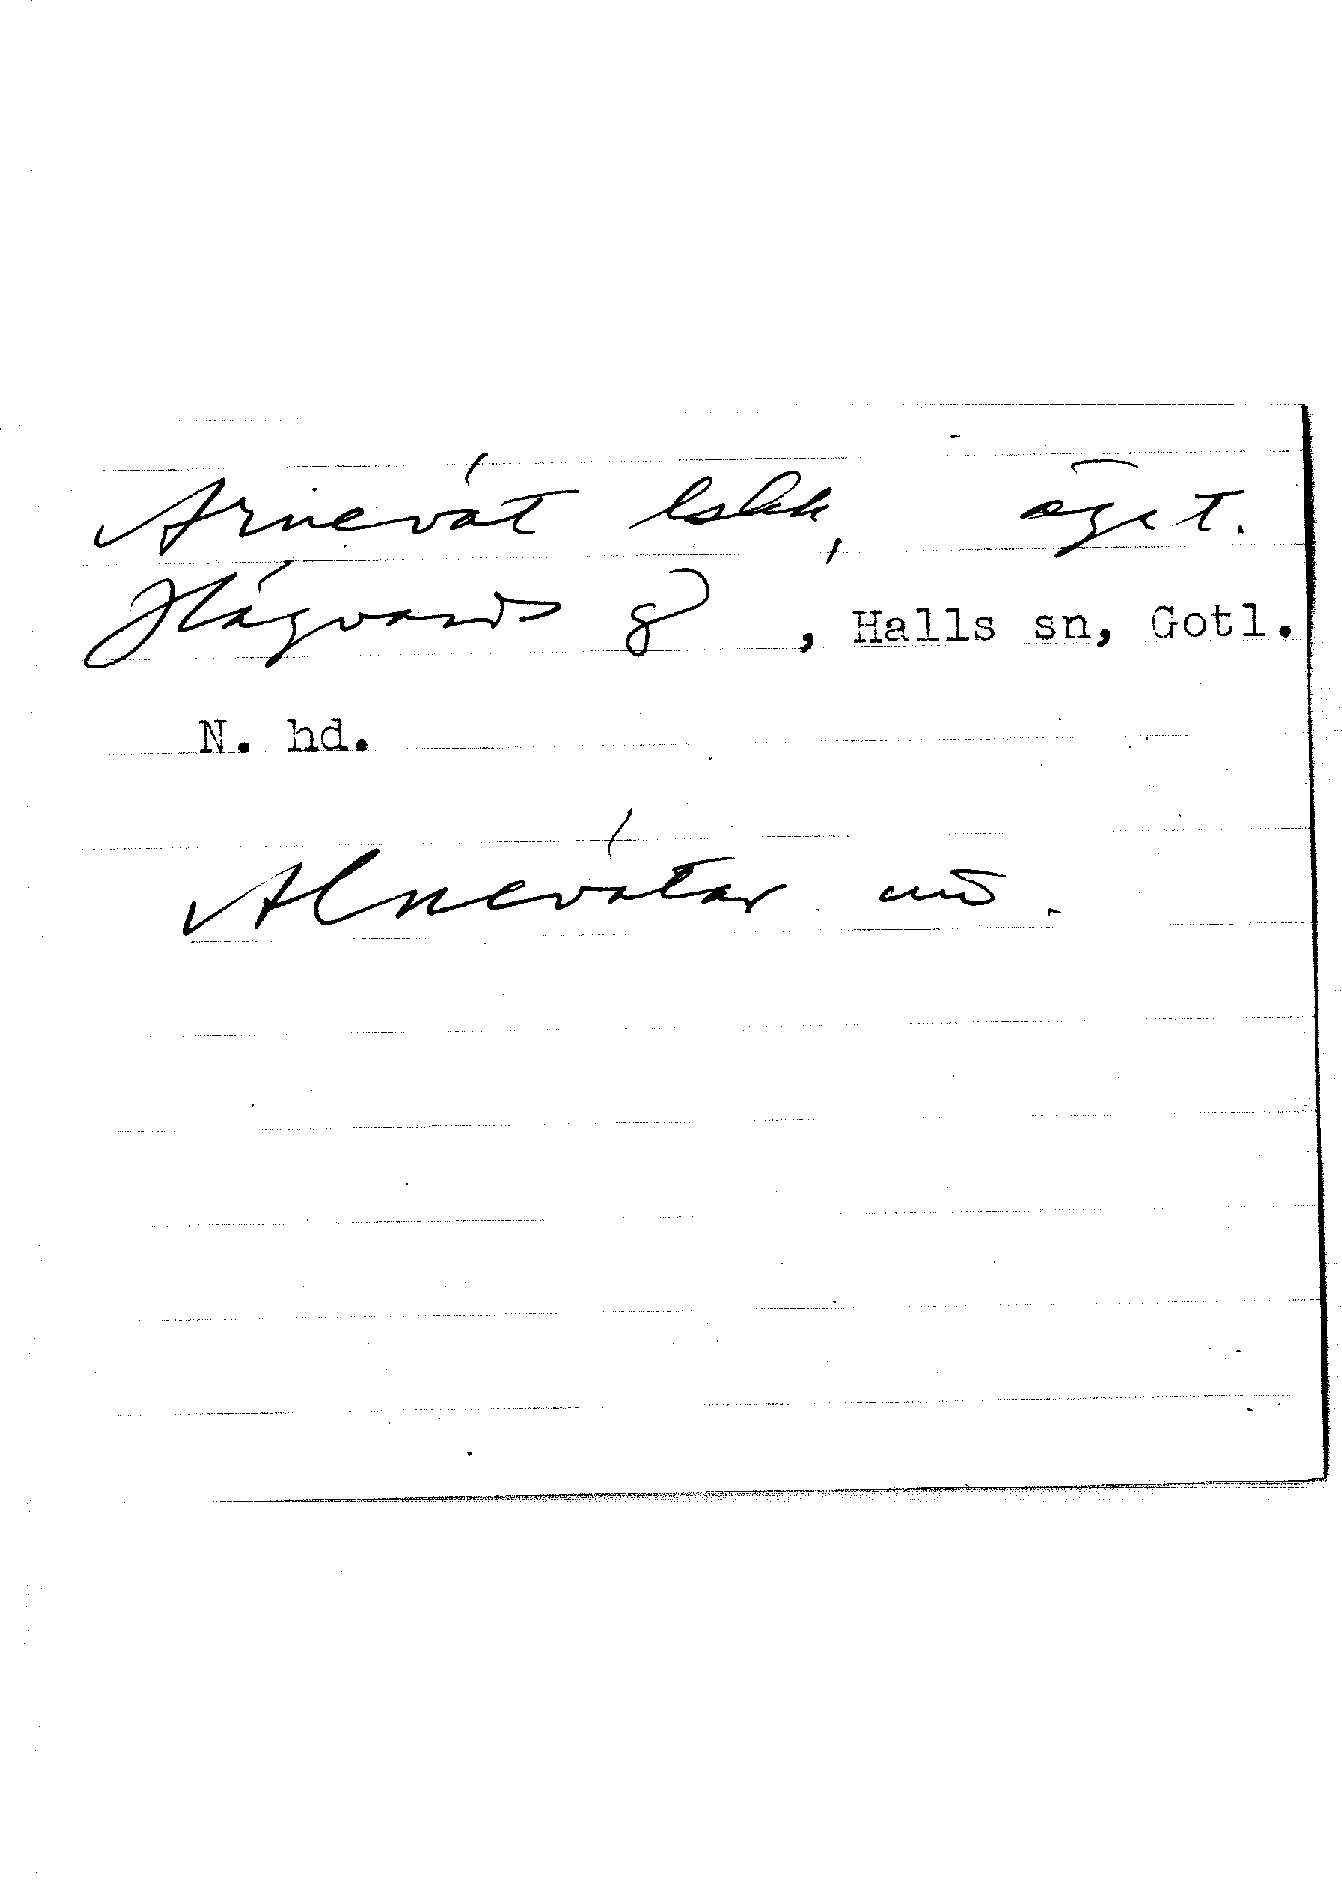 Arnevát lskh, ägit.
Hágvards g, Halls sn, Gotl.
N. hd.
Alnevátar